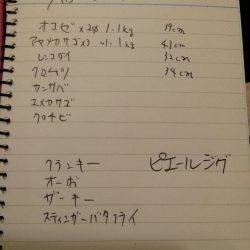 オコゼ×2 1.1kg 39cm
アヤメカサゴ×3 〜1.1kg 41cm
レンコダイ 32cm
クロムツ 34cm
カンサバ
ユメカサゴ
クロチビ
フランキー ピエールジグ
オーボ
ザーキー
スティンガーバタフライ